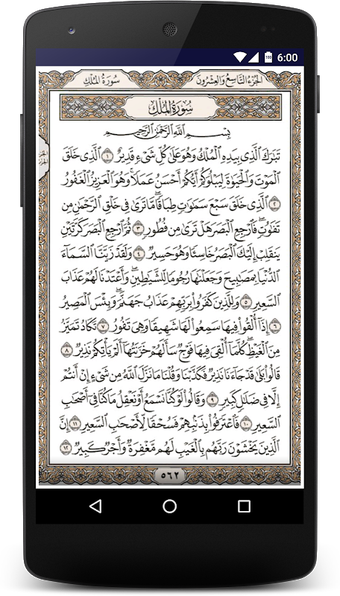 6:00
الجزء التاسع والعشرون
سورة الملك
سورة الملك
بسم الله الرحمن الرحيم
تَبَٰرَكَ ٱلَّذِى بِيَدِهِ ٱلْمُلْكُ وَهُوَ عَلَىٰ كُلِّ شَىْءٍ قَدِيرٌ ١ ٱلَّذِى خَلَقَ
ٱلْمَوْتَ وَٱلْحَيَوٰةَ لِيَبْلُوَكُمْ أَيُّكُمْ أَحْسَنُ عَمَلًا وَهُوَ ٱلْعَزِيزُ ٱلْغَفُورُ
٢ ٱلَّذِى خَلَقَ سَبْعَ سَمَٰوَٰتٍ طِبَاقًا مَّا تَرَىٰ فِى خَلْقِ ٱلرَّحْمَٰنِ مِن
تَفَٰوُتٍ فَٱرْجِعِ ٱلْبَصَرَ هَلْ تَرَىٰ مِن فُطُورٍ ٣ ثُمَّ ٱرْجِعِ ٱلْبَصَرَ كَرَّتَيْنِ
يَنقَلِبْ إِلَيْكَ ٱلْبَصَرُ خَاسِئًا وَهُوَ حَسِيرٌ ٤ وَلَقَدْ زَيَّنَّا ٱلسَّمَآءَ
ٱلدُّنْيَا بِمَصَٰبِيحَ وَجَعَلْنَٰهَا رُجُومًا لِّلشَّيَٰطِينِ وَأَعْتَدْنَا لَهُمْ عَذَابَ
ٱلسَّعِيرِ ٥ وَلِلَّذِينَ كَفَرُوا۟ بِرَبِّهِمْ عَذَابُ جَهَنَّمَ وَبِئْسَ ٱلْمَصِيرُ
٦ إِذَآ أُلْقُوا۟ فِيهَا سَمِعُوا۟ لَهَا شَهِيقًا وَهِىَ تَفُورُ ٧ تَكَادُ تَمَيَّزُ
مِنَ ٱلْغَيْظِ كُلَّمَآ أُلْقِىَ فِيهَا فَوْجٌ سَأَلَهُمْ خَزَنَتُهَآ أَلَمْ يَأْتِكُمْ نَذِيرٌ ٨
قَالُوا۟ بَلَىٰ قَدْ جَآءَنَا نَذِيرٌ فَكَذَّبْنَا وَقُلْنَا مَا نَزَّلَ ٱللَّهُ مِن شَىْءٍ إِنْ أَنتُمْ
إِلَّا فِى ضَلَٰلٍ كَبِيرٍ ٩ وَقَالُوا۟ لَوْ كُنَّا نَسْمَعُ أَوْ نَعْقِلُ مَا كُنَّا فِىٓ أَصْحَٰبِ
ٱلسَّعِيرِ ١٠ فَٱعْتَرَفُوا۟ بِذَنۢبِهِمْ فَسُحْقًا لِّأَصْحَٰبِ ٱلسَّعِيرِ ١١ إِنَّ
ٱلَّذِينَ يَخْشَوْنَ رَبَّهُم بِٱلْغَيْبِ لَهُم مَّغْفِرَةٌ وَأَجْرٌ كَبِيرٌ ١٢
٥٦٢